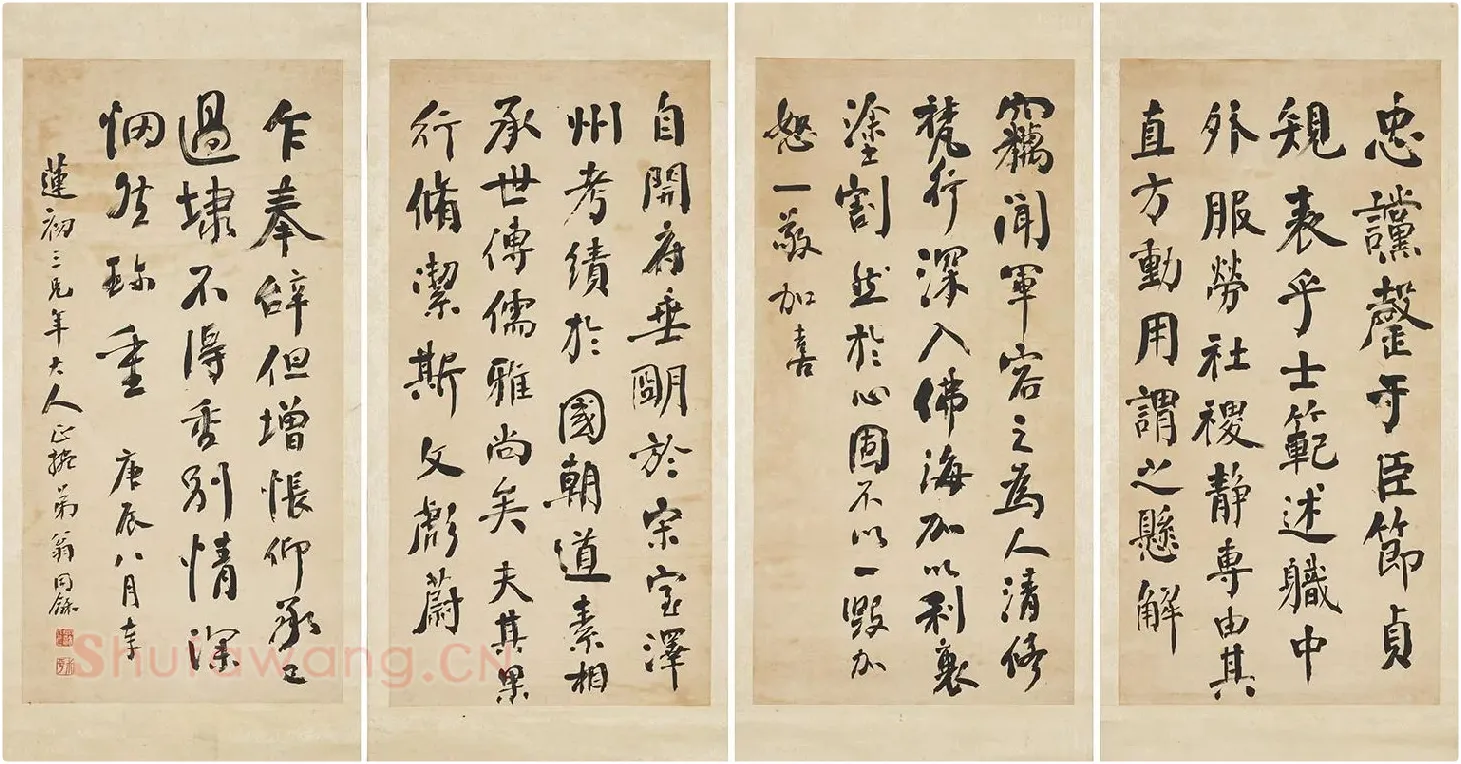 忠讜罄于臣節貞
規表乎士範述職中
外服勞社稷靜專由其
直方動用謂之懸解
竊聞軍容之為人清修
梵行深入佛海加以利衰
塗割然於心固不以一毀加
怒一敬加喜
自開府垂明於宋室澤
州考績於國朝道素相
承世傳儒雅尚矣夫其果
行脩潔斯文彪蔚
乍奉辭但增悵仰承已
過埭不得重別情深
惘然珍重 庚辰八月奉
蓮初三兄年大人正 弟翁同龢
Shufawang.CN